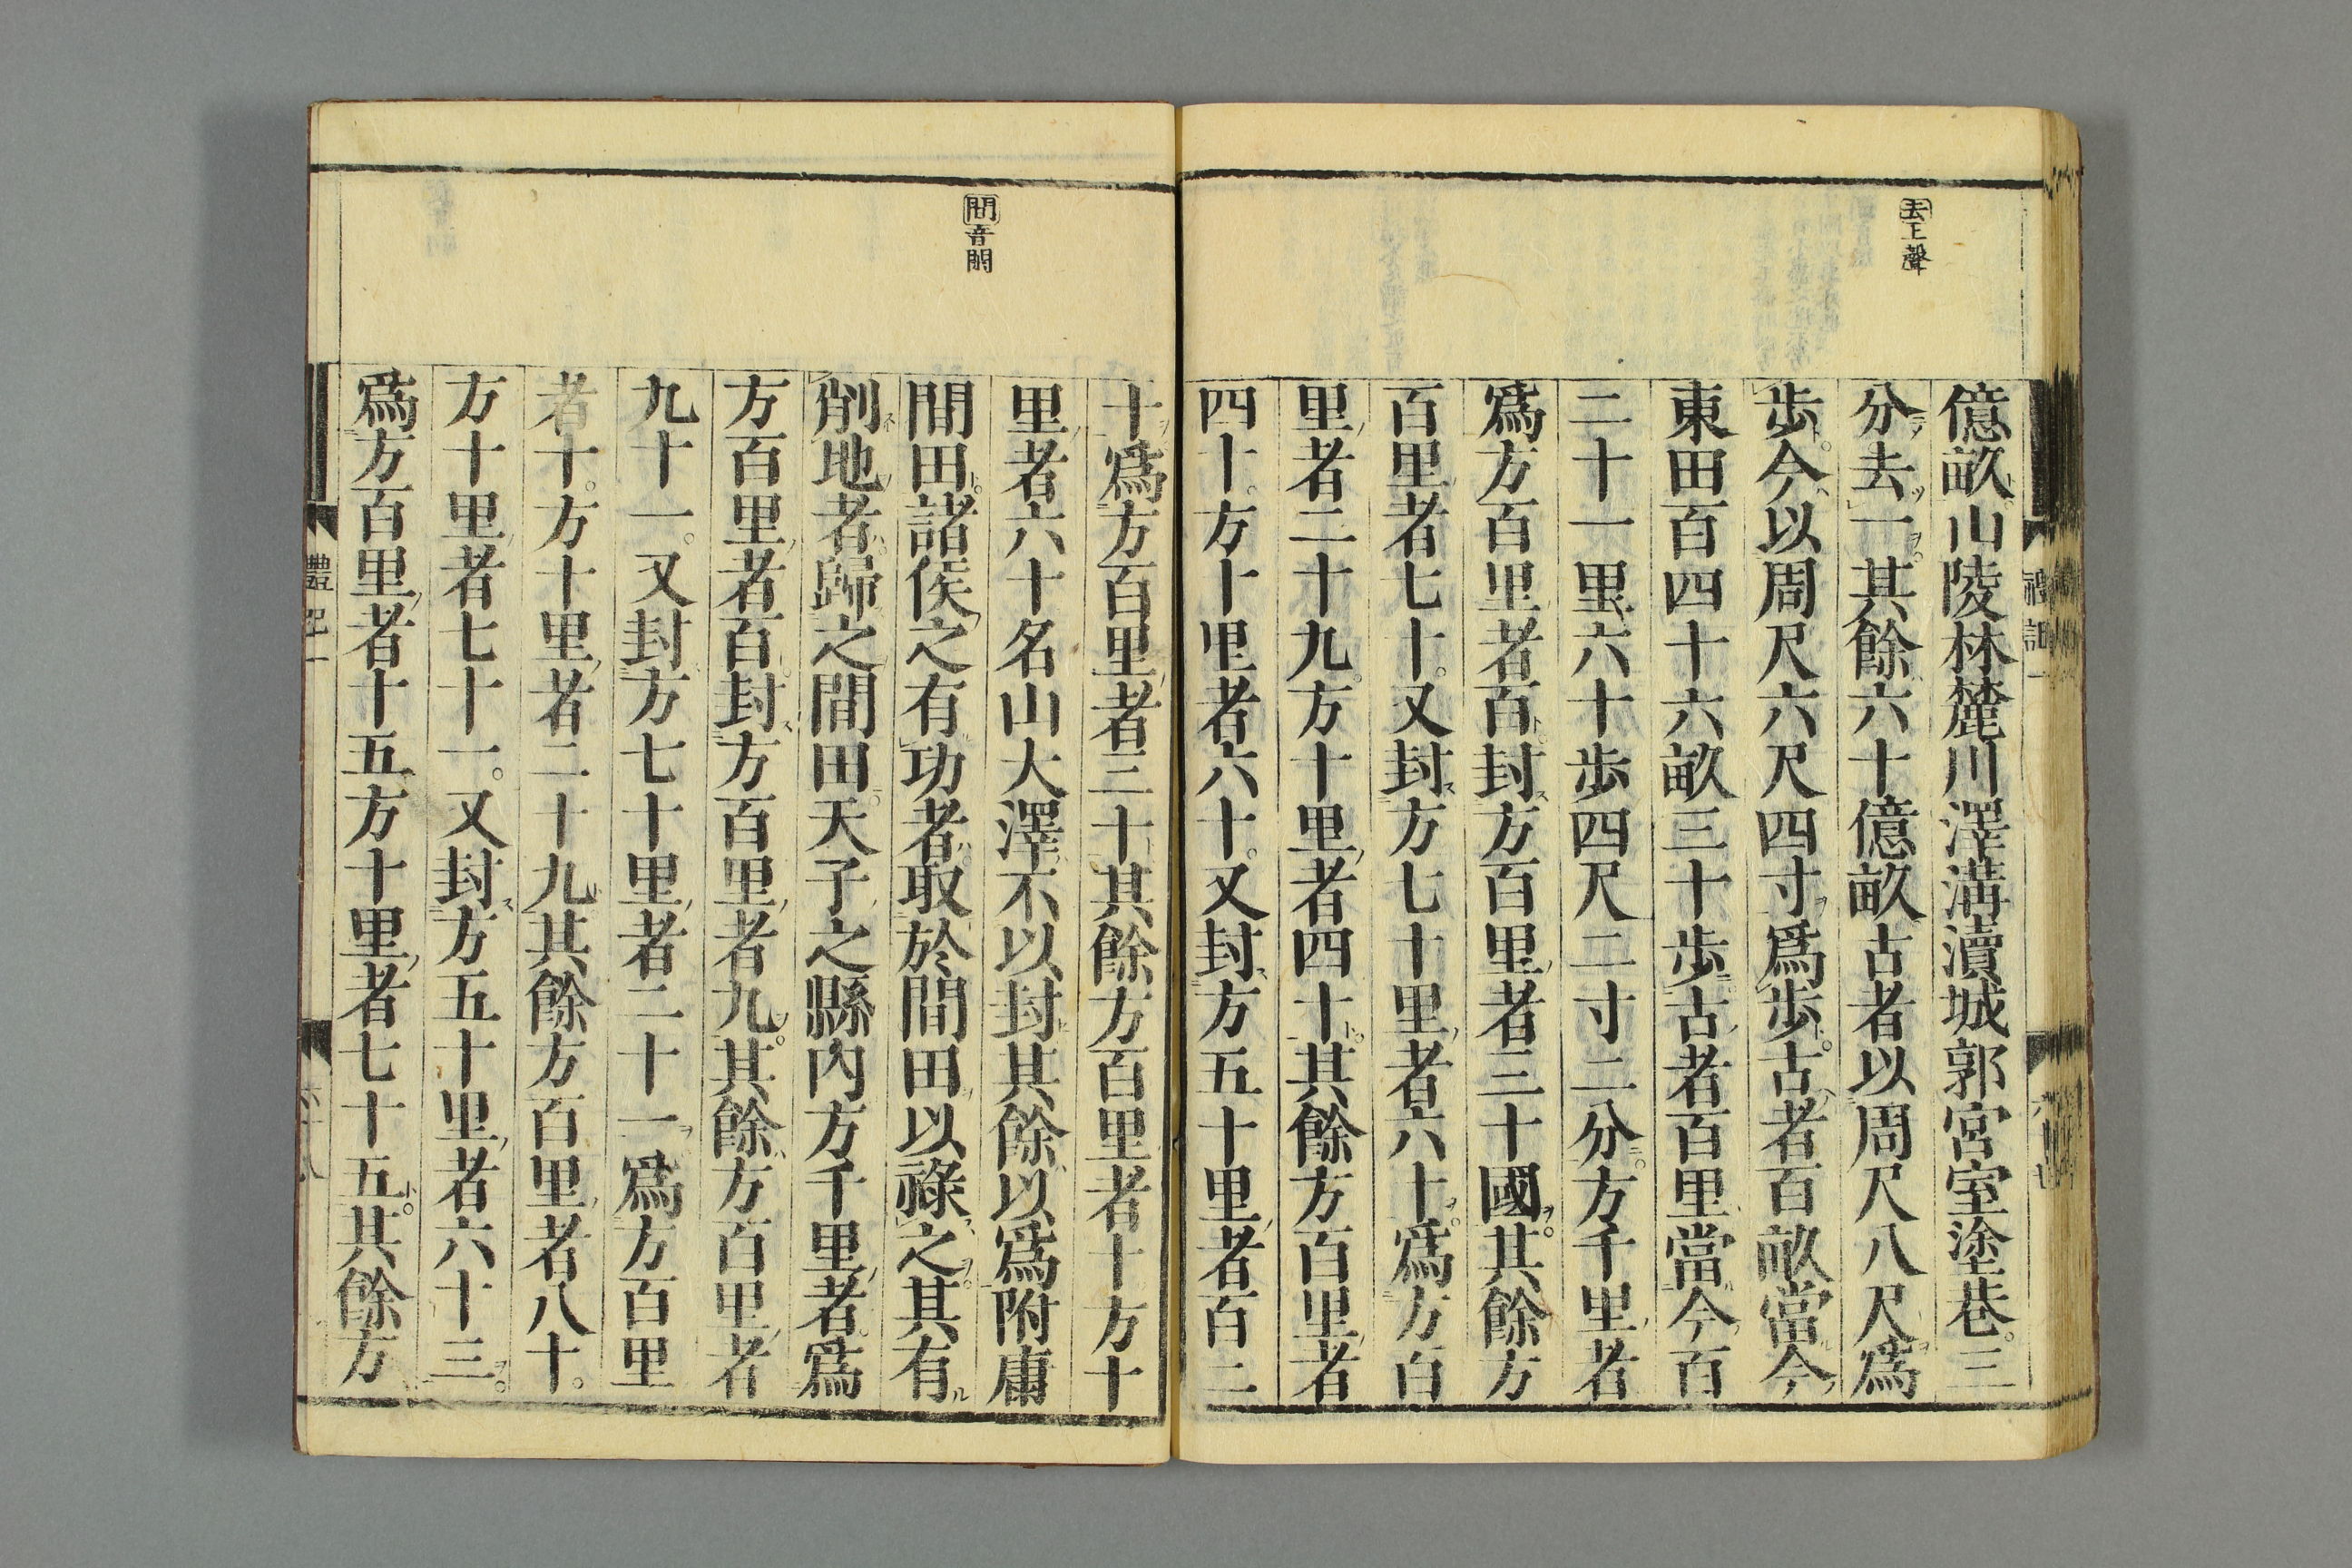 去上聲
億畝山陵林麓川澤溝瀆城郭宮室塗巷三
分去一其餘六十億畝古者以周尺八尺爲
歩今以周尺六尺四寸爲歩古者百畝當今
東田百四十六畝三十歩古者百里當今百
二十一里六十歩四尺二寸二分方千里者
爲方百里者百封方百里者三十國其餘方
百里者七十又封方七十里者六十爲方百
里者二十九方十里者四十其餘方百里者
四十方十里者六十又封方五十里者百二
間音閑
十爲方百里者三十其餘方百里者十方十
里者六十名山大澤不以封其餘以爲附庸
間田諸侯之有功者取於間田以祿之其有
削地者歸之間田天子之縣内方千里者爲
方百里者百封方百里者九其餘方百里者
九十一又封方七十里者二十一爲方百里
者十方十里者二十九其餘方百里者八十
方十里者七十一又封方五十里者六十三
爲方百里者十五方十里者七十五其餘方